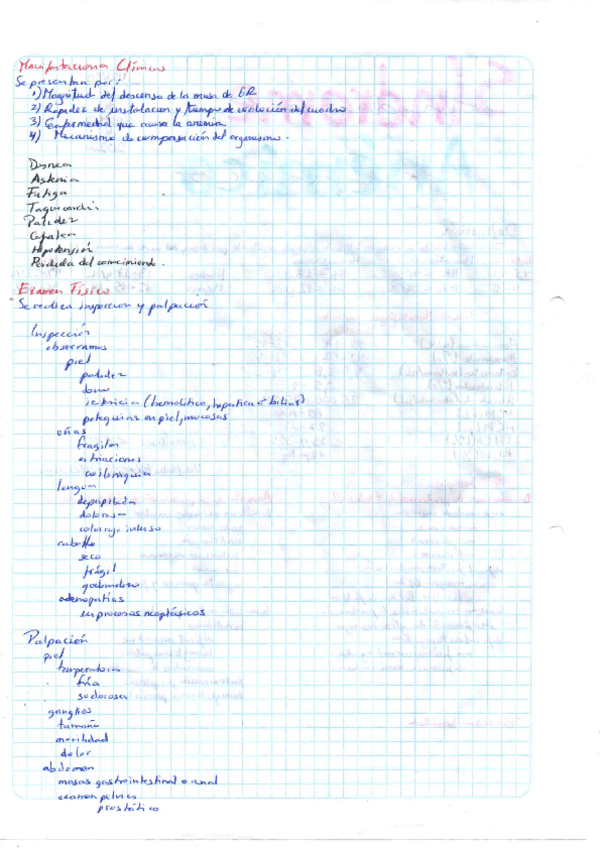 Manifestaciones Clínicas
Se presentan por:
1) Magnitud del descenso de la masa de GR
2) Rapidez de instalacion y tiempo de evolución del cuadro
3) Enfermedad que causa la anemia
4) Mecanismo de compensación del organismo.
Disnea
Astenia
Fatiga
Taquicardia
Palidez
Cefalea
Hipotensión
Perdida del conocimiento.
Examen Físico
Se realiza inspeccion y palpación
Inspección
observamos
piel
palidez
ictericia (hemolitica, hepatica o biliar)
petequias en piel, mucosas
uñas
fragiles
estriaciones
coiloniquia
lengua
depapilada
dolorosa
color rojo intenso
cabello
seco
frágil
quebradizo
adenopatías
en procesos neoplásicos
Palpación
piel
temperatura
fría
sudorosa
ganglios
tamaño
movilidad
dolor
abdomen
masas gastrointestinal o anal
examen pelvico
prostático